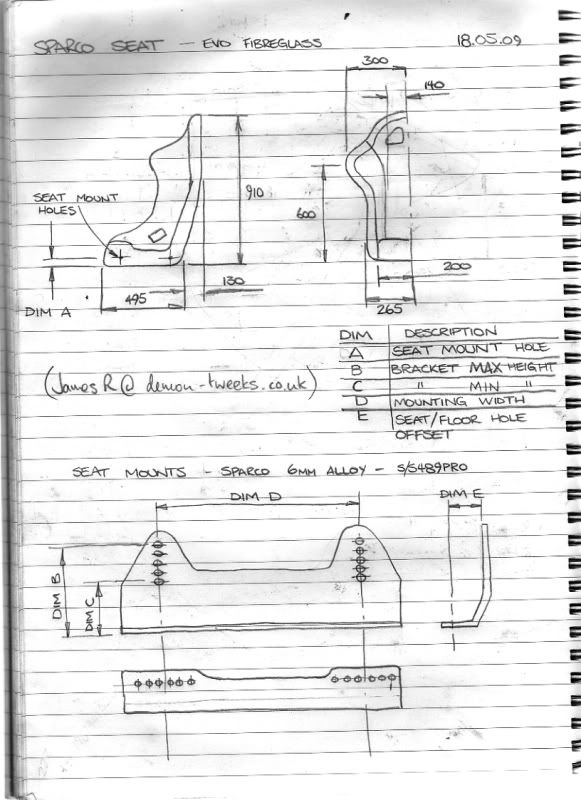 SPARCO SEAT - EVO FIBREGLASS 18.05.09
300
140
SEAT MOUNT
HOLES
910
600
130
495
DIM A
200
265
DIM DESCRIPTION
A SEAT MOUNT HOLE
B BRACKET MAX HEIGHT
C " MIN "
D MOUNTING WIDTH
E SEAT/FLOOR HOLE
OFFSET
(JamesR@demon-tweeks.co.uk)
SEAT MOUNTS - SPARCO 6MM ALLOY - S/S489PRO
DIM D
DIM E
DIM B
DIM C